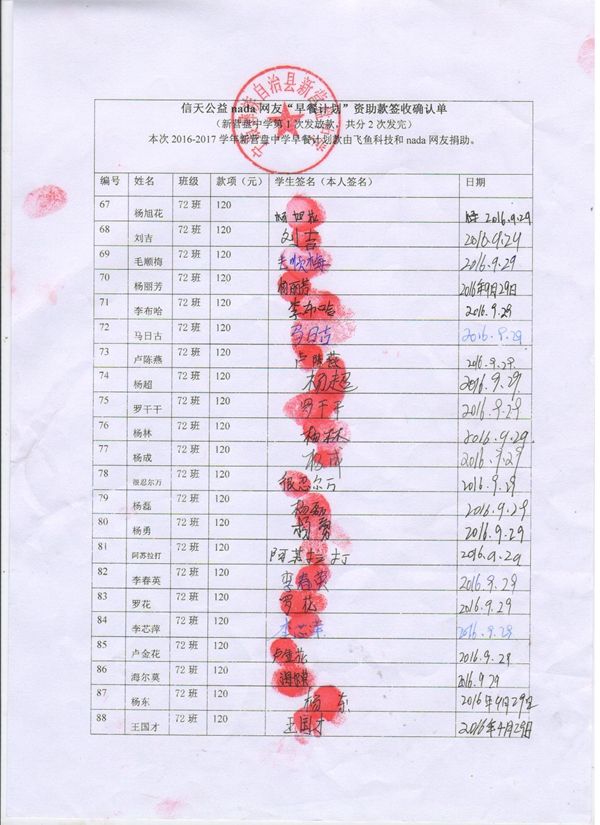 信天公益 nada 网友“早餐计划”资助款签收确认单
（新营盘中学第1次发放款，共分2次发完）
本次 2016-2017 学年新营盘中学早餐计划款由飞鱼科技和 nada 网友捐助。
编号 姓名 班级 款项（元） 学生签名（本人签名） 日期
67 杨旭花 72班 120 杨旭花 2016.9.29
68 刘吉 72班 120 刘吉 2016.9.29
69 毛顺梅 72班 120 毛顺梅 2016.9.29
70 杨丽芳 72班 120 杨丽芳 2016年9月29日
71 李布哈 72班 120 李布哈 2016.9.29
72 马日古 72班 120 马日古 2016.9.29
73 卢陈燕 72班 120 卢陈燕 2016.9.29
74 杨超 72班 120 杨超 2016.9.29
75 罗干干 72班 120 罗干干 2016.9.29
76 杨林 72班 120 杨林 2016.9.29
77 杨成 72班 120 杨成 2016.9.29
78 很忍尔万 72班 120 很忍尔万 2016.9.29
79 杨磊 72班 120 杨磊 2016.9.29
80 杨勇 72班 120 杨勇 2016.9.29
81 阿苏拉打 72班 120 阿苏拉打 2016.9.29
82 李春英 72班 120 李春英 2016.9.29
83 罗花 72班 120 罗花 2016.9.29
84 李芯萍 72班 120 李芯萍 2016.9.29
85 卢金花 72班 120 卢金花 2016.9.29
86 海尔莫 72班 120 海尔莫 2016.9.29
87 杨东 72班 120 杨东 2016年9月29日
88 王国才 72班 120 王国才 2016年9月29日